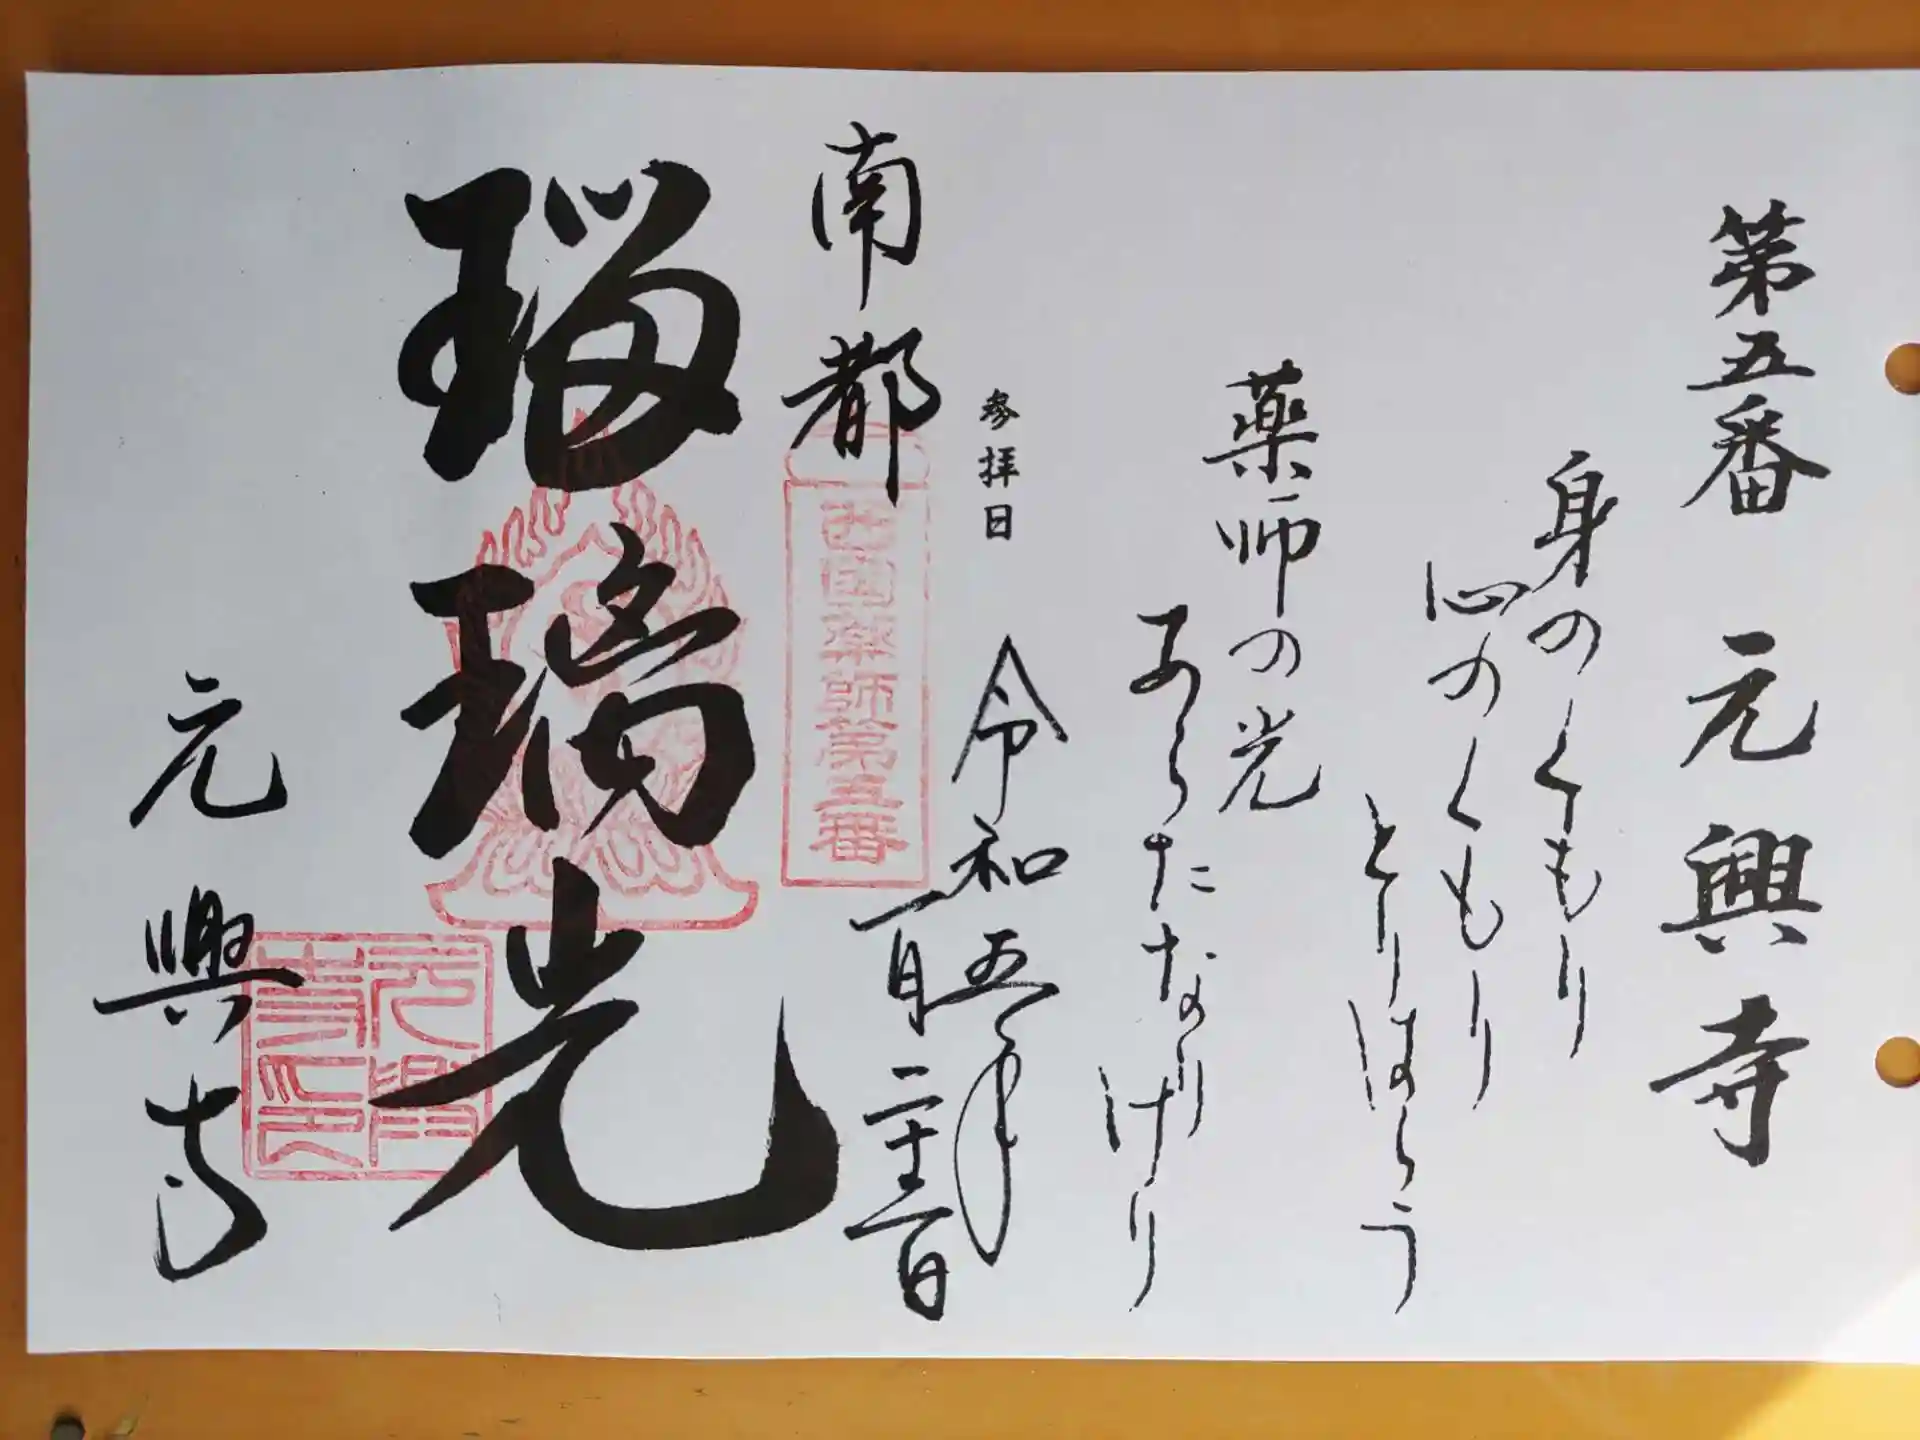 第五番 元興寺
身のくもり
心のくもり
とりはらう
薬師の光
あらたなりけり
参拝日 令和五年
一月二十二日
南都
西國薬師第五番
瑠璃光
元興寺
元興
寺印